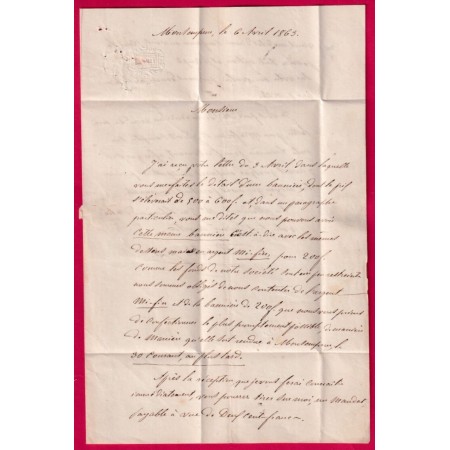 Montempuis, le 6 Avril 1863.
Monsieur
J'ai reçu votre lettre du 3 Avril dans laquelle
vous me faites le détail d'une bannière, dont le prix
s'élèverait de 500 à 600f et, dans un paragraphe
particulier, vous me dites que nous pouvons avoir
cette même bannière C'est à dire avec les mêmes
dessins, mais en argent mi-fin, pour 200f.
Comme les fonds de notre société sont un peu
nous sommes obligés de nous contenter de l'argent
mi-fin et de la bannière de 200f que nous vous prions
de confectionner le plus promptement possible
de manière qu'elle soit rendue à Montempuis le
30 Courant, au plus tard.
Après la réception que je vous ferai connaître
immédiatement, vous pourrez tirer sur moi, un mandat
payable à vue de Deux Cent francs